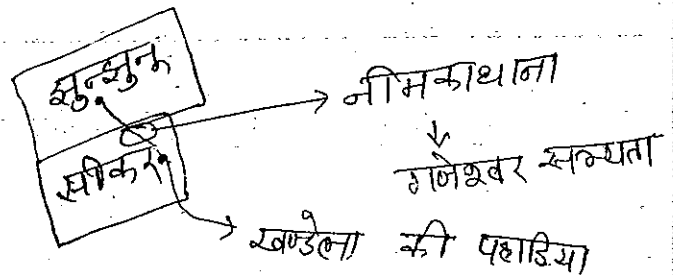 झुन्झुनू
नीमकाथाना
सीकर
गणेश्वर सभ्यता
खण्डेला की पहाडिया